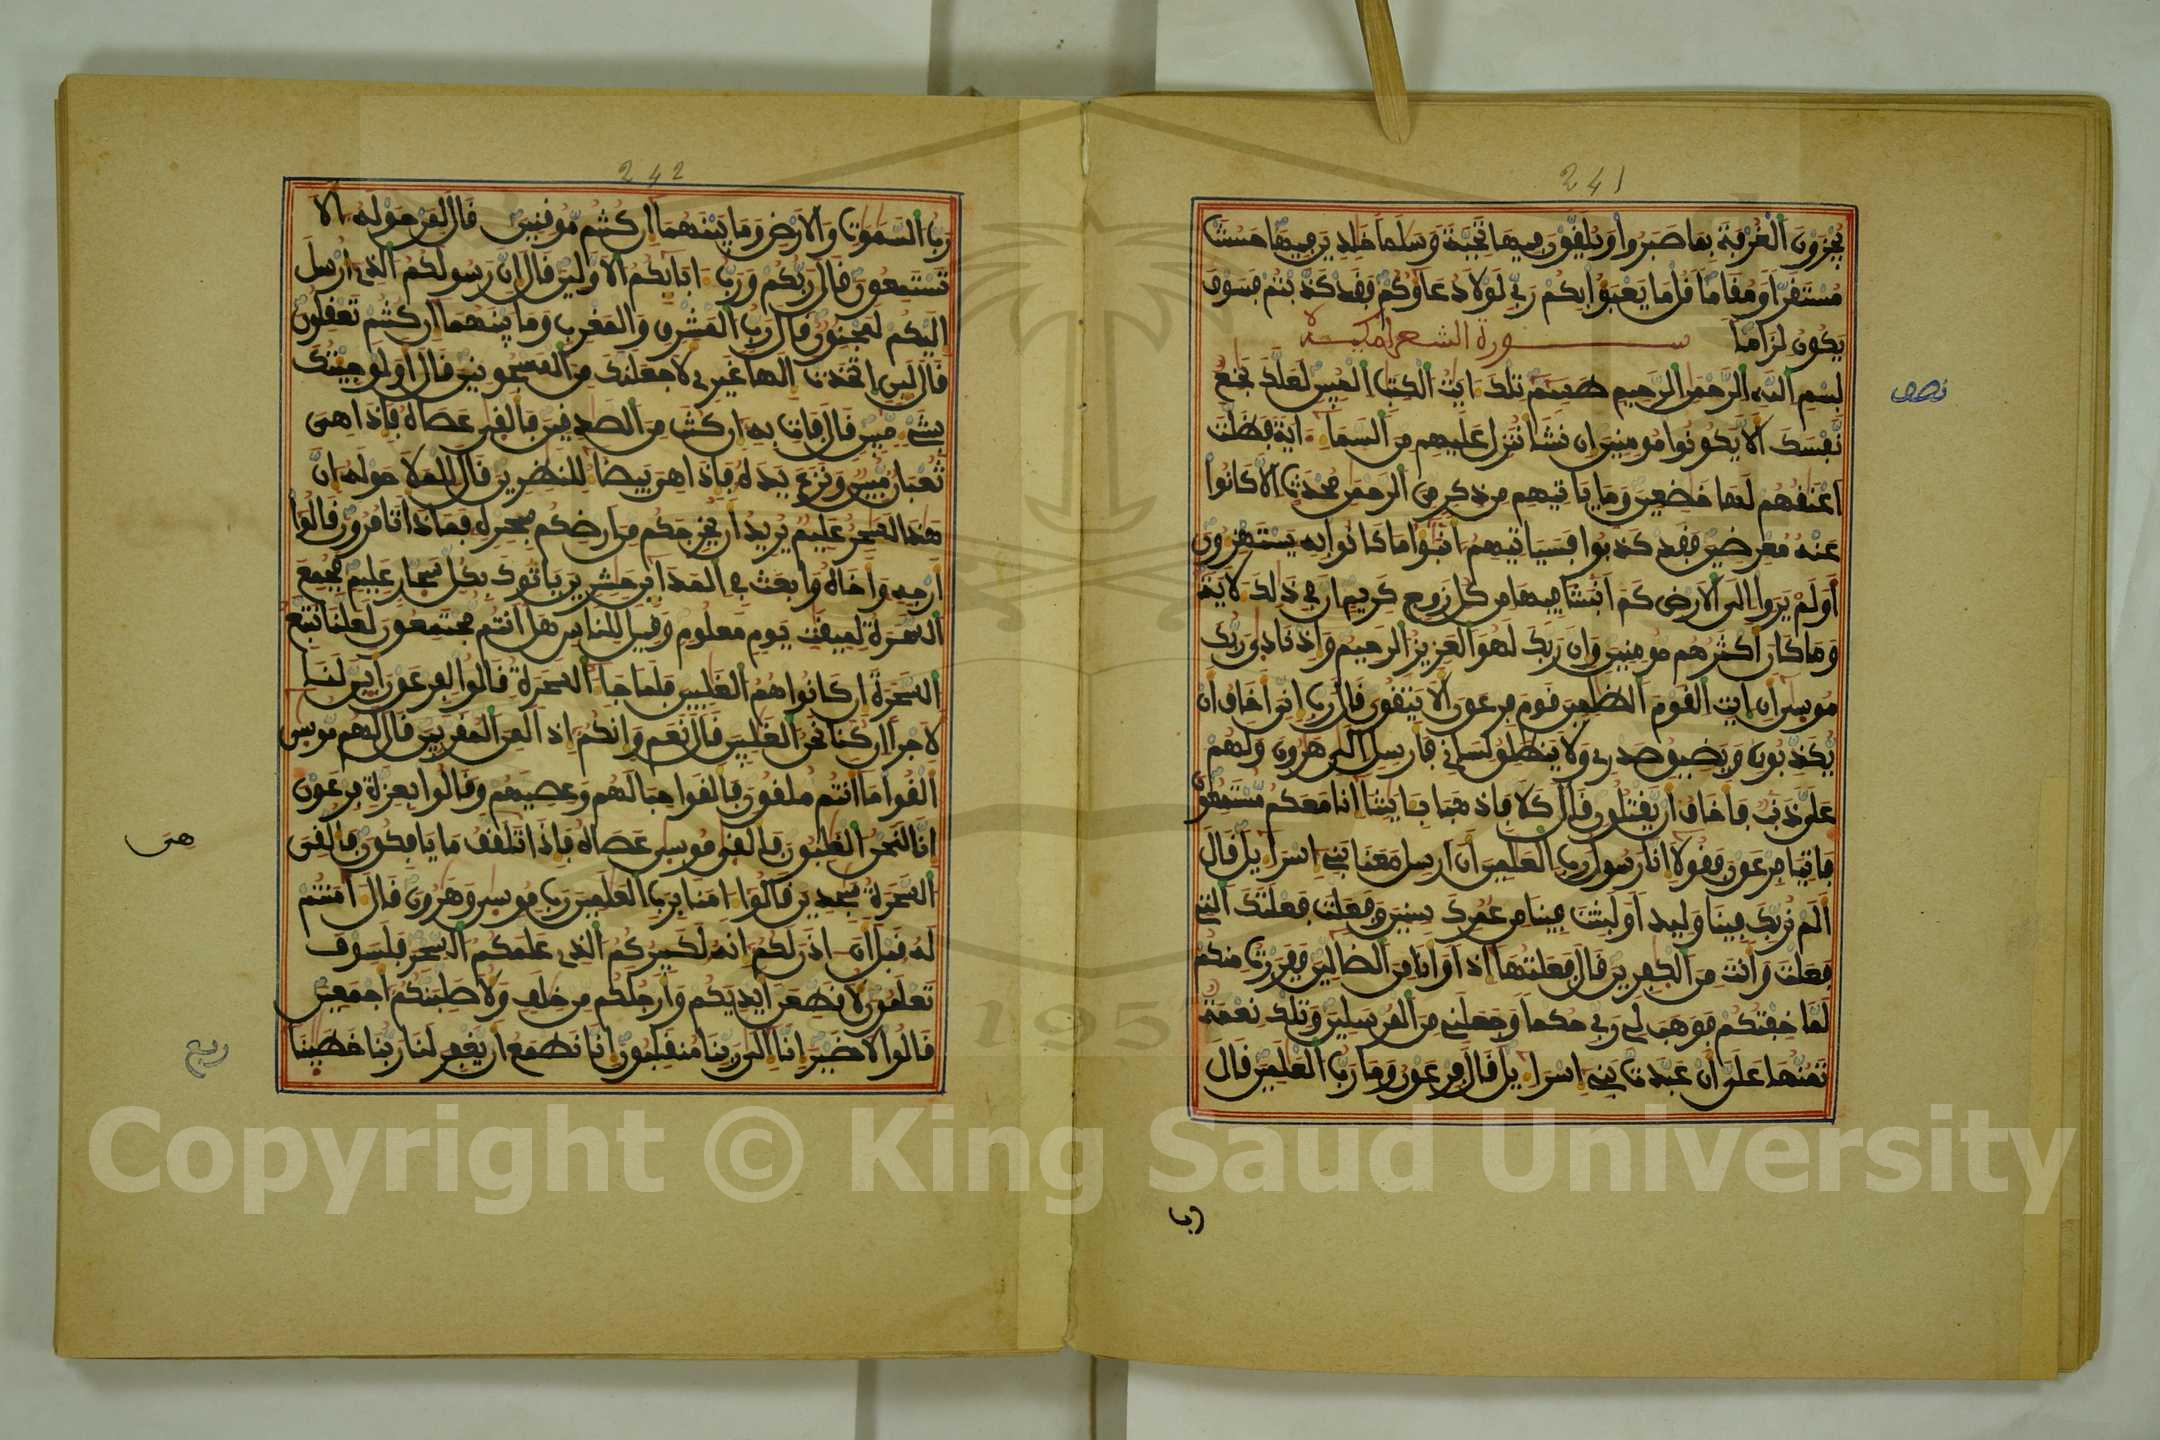 241
يجزون الغرفة بما صبروا ويلقون فيها تحية وسلما خلدين فيها حسنت
مستقرا ومقاما قل ما يعبؤا بكم ربي لولا دعاؤكم فقد كذبتم فسوف
يكون لزاما سورة الشعرا مكية
بسم الله الرحمن الرحيم طسم تلك ايت الكتب المبين لعلك بخع
نفسك الا يكونوا مومنين ان نشأ ننزل عليهم من السما اية فظلت
اعنقهم لها خضعين وما ياتيهم من ذكر من الرحمن محدث الا كانوا
عنه معرضين فقد كذبوا فسياتيهم انبؤا ما كانوا به يستهزءون
اولم يروا الى الارض كم انبتنا فيها من كل زوج كريم ان في ذلك لاية
وما كان اكثرهم مومنين وان ربك لهو العزيز الرحيم واذ نادى ربك
موسى ان ايت القوم الظلمين قوم فرعون الا يتقون قال رب اني اخاف ان
يكذبون ويضيق صدري ولا ينطلق لساني فارسل الى هرون ولهم
علي ذنب فاخاف ان يقتلون قال كلا فاذهبا بايتنا انا معكم مستمعون
فاتيا فرعون فقولا انا رسول رب العلمين ان ارسل معنا بني اسراءيل قال
الم نربك فينا وليدا ولبثت فينا من عمرك سنين وفعلت فعلتك التي
فعلت وانت من الكفرين قال فعلتها اذا وانا من الضالين ففررت منكم
لما خفتكم فوهب لي ربي حكما وجعلني من المرسلين وتلك نعمة
تمنها علي ان عبدت بني اسراءيل قال فرعون وما رب العلمين قال
نصف
رب
242
رب السموت والارض وما بينهما ان كنتم موقنين قال لمن حوله الا
تستمعون قال ربكم ورب ابائكم الاولين قال ان رسولكم الذي ارسل
اليكم لمجنون قال رب المشرق والمغرب وما بينهما ان كنتم تعقلون
قال لين اتخذت الها غيري لاجعلنك من المسجونين قال اولو جيتك
بشيء مبين قال فات به ان كنت من الصدقين فالقى عصاه فاذا هي
ثعبان مبين ونزع يده فاذا هي بيضا للنظرين قال للملا حوله ان
هذا لسحر عليم يريد ان يخرجكم من ارضكم بسحره فماذا تامرون قالوا
ارجه واخاه وابعث في المداين حشرين ياتوك بكل سحار عليم فجمع
السحرة لميقت يوم معلوم وقيل للناس هل انتم مجتمعون لعلنا نتبع
السحرة ان كانوا هم الغلبين فلما جا السحرة قالوا لفرعون اين لنا
لاجرا ان كنا نحن الغلبين قال نعم وانكم اذا لمن المقربين قال لهم موسى
القوا ما انتم ملقون فالقوا حبالهم وعصيهم وقالوا بعزة فرعون
انا لنحن الغلبون فالقى موسى عصاه فاذا تلقف ما يافكون فالقي
السحرة سجدين قالوا امنا برب العلمين رب موسى وهرون قال امنتم
له قبل ان اذن لكم انه لكبيركم الذي علمكم السحر فلسوف
تعلمون لاقطعن ايديكم وارجلكم من خلف ولاصلبنكم اجمعين
قالوا لا ضير انا الى ربنا منقلبون انا نطمع ان يغفر لنا ربنا خطينا
هي
ربع
1957
Copyright © King Saud University